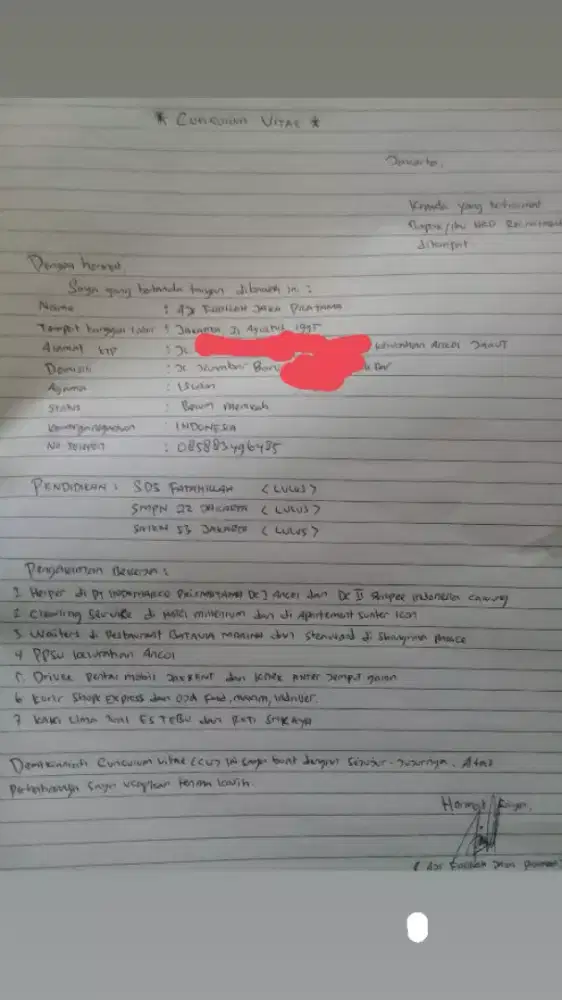 * CURICULUM VITAE *
Jakarta,
Kepada yang terhormat
Bapak/ibu HRD Recruitment
ditempat
Dengan hormat,
Saya yang bertanda tangan dibawah ini :
Nama : JAKA PRATAMA
Tempat tanggal lahir : JAKARTA 21 Agustus 1995
Alamat KTP : JL kelurahan Ancol JAKUT
Domisili : JL Jembatan Baru
Agama : Islam
Status : Belum menikah
Kewarganegaraan : INDONESIA
No Telepon : 085883496485
PENDIDIKAN : SDS FATAHILLAH (LULUS)
SMPN 22 JAKARTA (LULUS)
53 JAKARTA (LULUS)
Pengalaman Bekerja :
1 Helper di PT INDOMARCO PRISMATAMA DC I Ancol dan DC II Shopee indonesia cawang
2 Cleaning Service di Hotel millenium dan di Apartement sunter icon
3 Waiters di Restaurant BATAVIA MARINA dan Steward di Shangrila
4 PPSU kelurahan Ancol
5 Driver Rental mobil dan Anter Jemput
6 Kurir Shope Express dan Food, maxim, indriver.
7 KAKI LIMA Jual ES TEBU dan ROTI SRIKAYA
Demikianlah Curiculum Vitae (CV) ini saya buat dengan sejujur-jujurnya. Atas
perhatiannya saya ucapkan terima kasih.
Hormat saya,